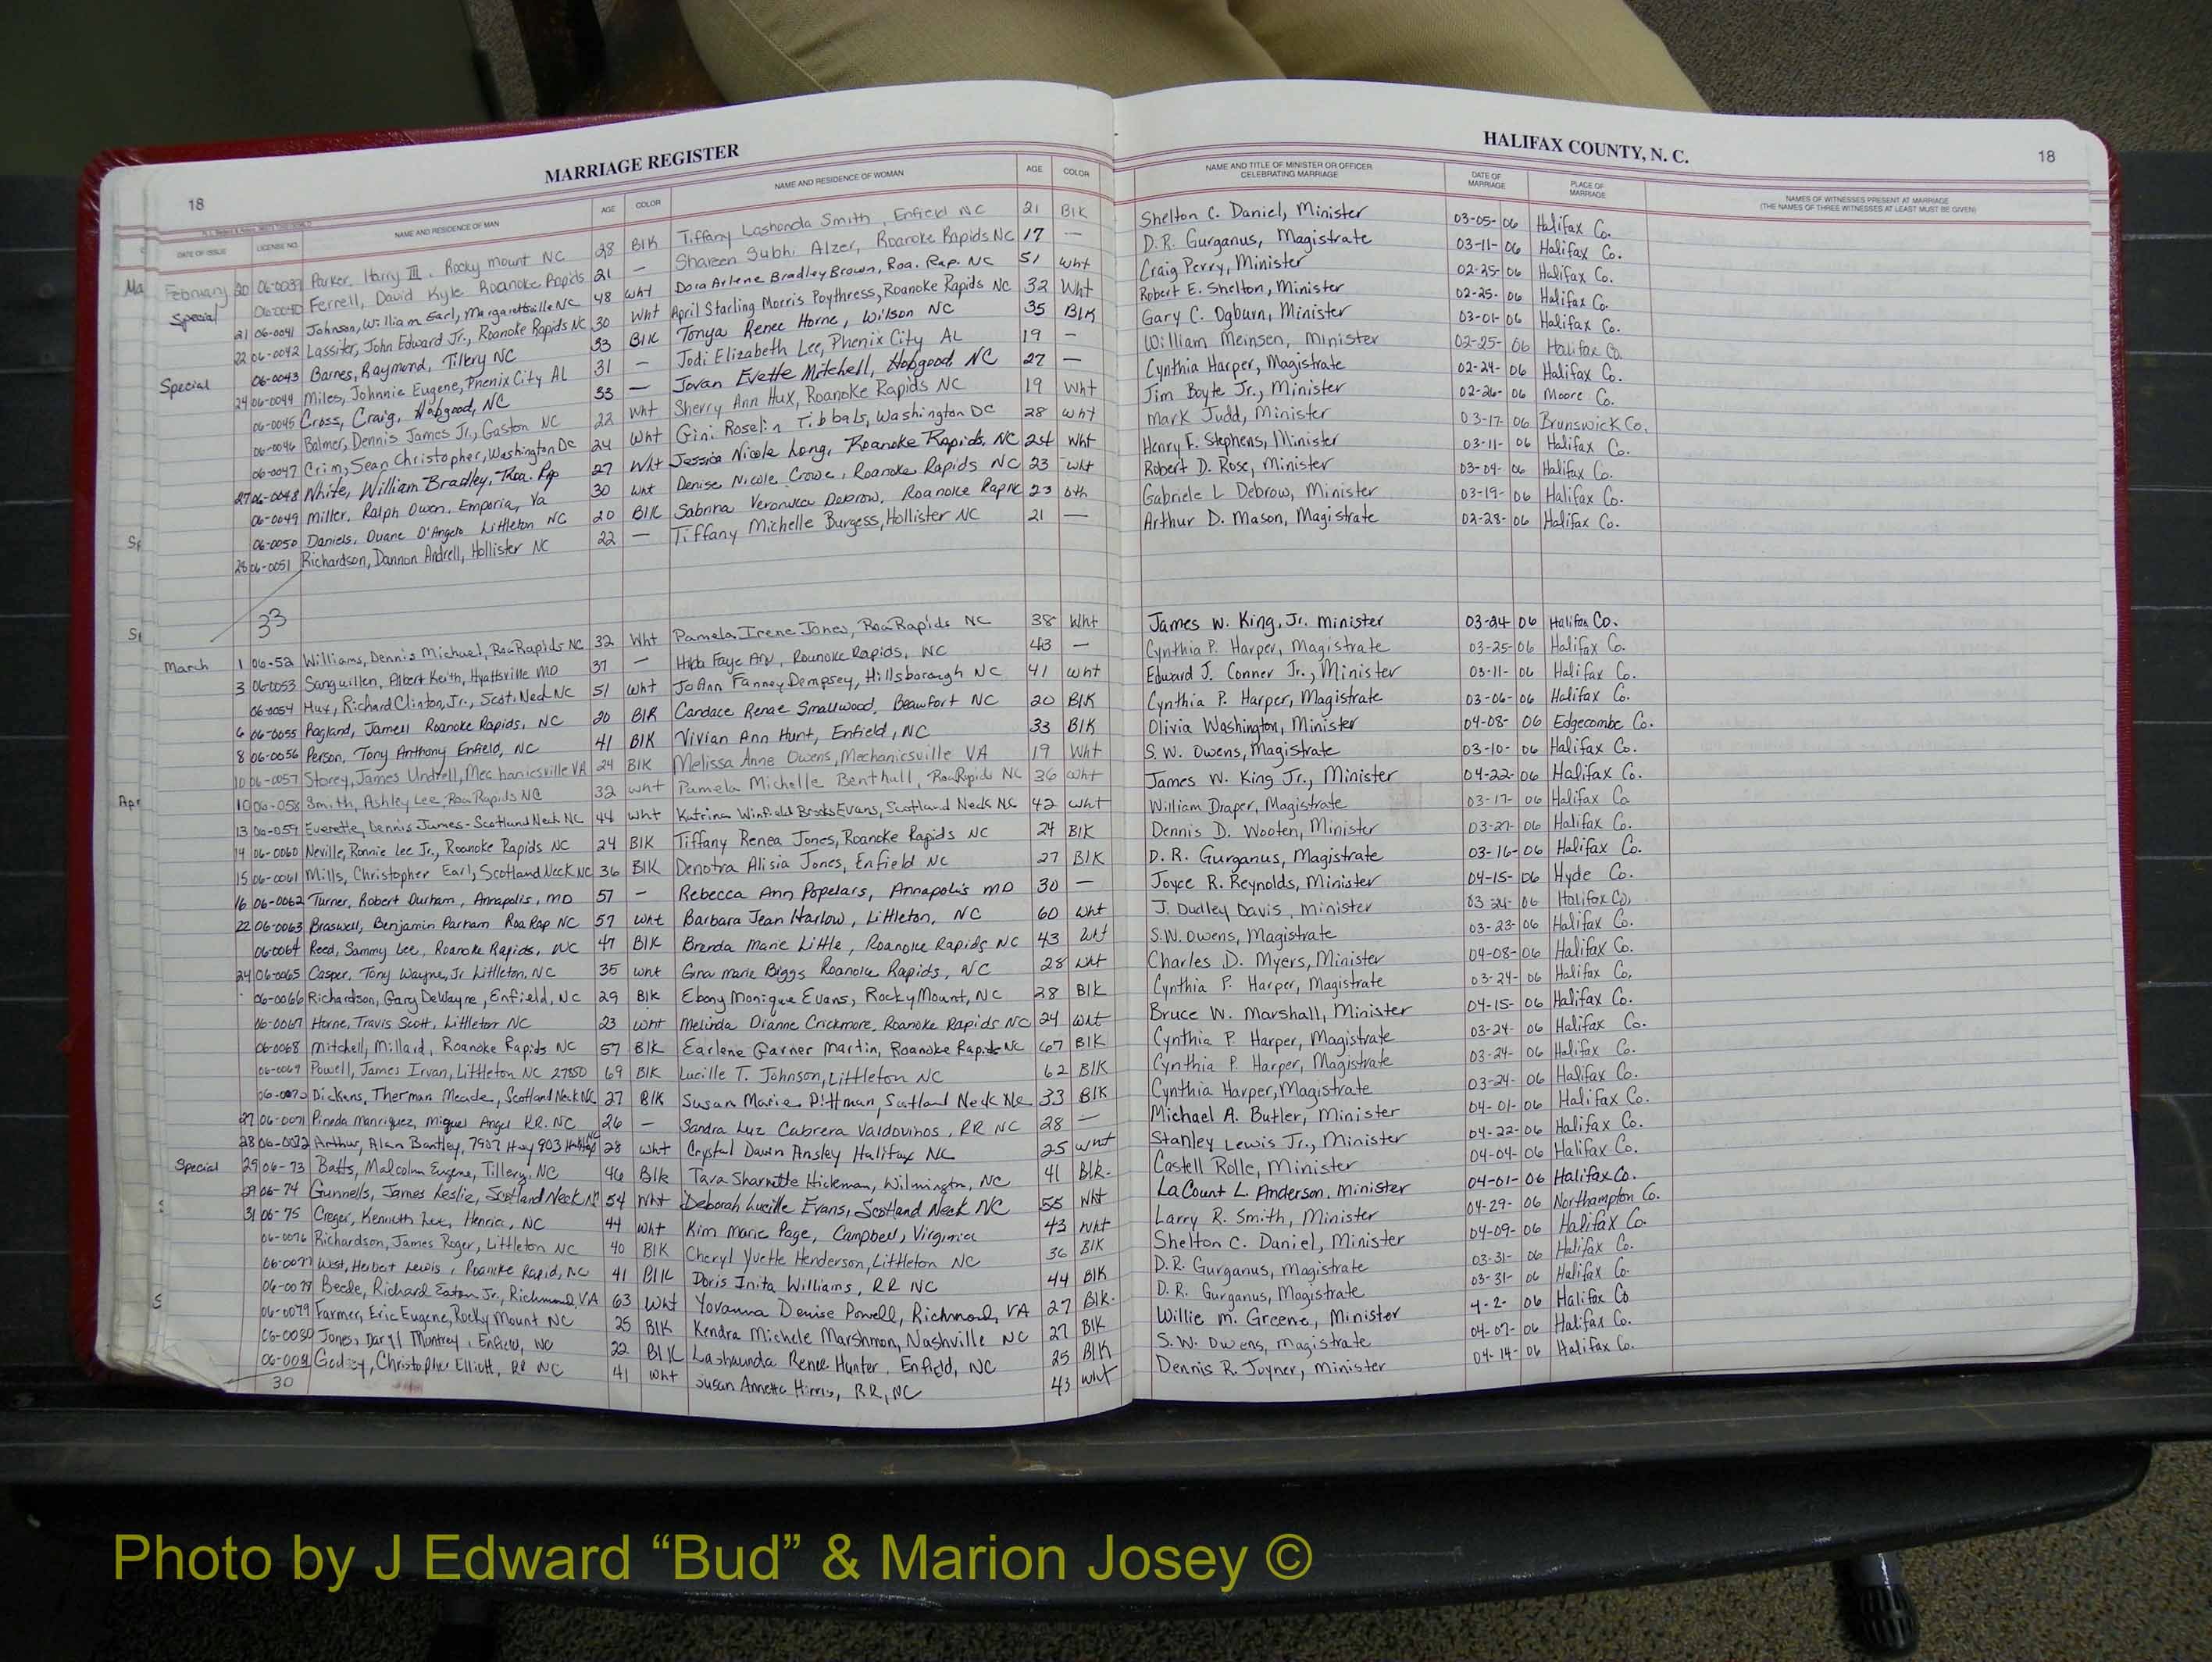 MARRIAGE REGISTER
HALIFAX COUNTY, N. C.
18
18
DATE OF ISSUE LICENSE NO. NAME AND RESIDENCE OF MAN AGE COLOR NAME AND RESIDENCE OF WOMAN AGE COLOR NAME AND TITLE OF MINISTER OR OFFICER CELEBRATING MARRIAGE DATE OF MARRIAGE PLACE OF MARRIAGE NAMES OF WITNESSES PRESENT AT MARRIAGE (THE NAMES OF THREE WITNESSES AT LEAST MUST BE GIVEN)
February 20 06-0039 Parker, Harry III, Rocky Mount NC 28 Blk Tiffany Lashonda Smith, Enfield NC 21 Blk Shelton C. Daniel, Minister 03-05-06 Halifax Co.
Special 06-0040 Ferrell, David Kyle Roanoke Rapids 21 — Shareen Subhi Alzer, Roanoke Rapids NC 17 — D.R. Gurganus, Magistrate 03-11-06 Halifax Co.
21 06-0041 Johnson, William Earl, Margarettsville NC 48 Wht Dora Arlene Bradley Brown, Roa. Rap. NC 51 Wht Craig Perry, Minister 02-25-06 Halifax Co.
22 06-0042 Lassiter, John Edward Jr., Roanoke Rapids NC 30 Wht April Starling Morris Poythress, Roanoke Rapids NC 32 Wht Robert E. Shelton, Minister 02-25-06 Halifax Co.
06-0043 Barnes, Raymond, Tillery NC 33 Blk Tonya Renee Horne, Wilson NC 35 Blk Gary C. Ogburn, Minister 03-01-06 Halifax Co.
Special 24 06-0044 Miles, Johnnie Eugene, Phenix City AL 31 — Jodi Elizabeth Lee, Phenix City AL 19 — William Meinsen, Minister 02-25-06 Halifax Co
06-0045 Cross, Craig, Hobgood, NC 33 — Jovan Evette Mitchell, Hobgood NC 27 — Cynthia Harper, Magistrate 02-24-06 Halifax Co.
06-0046 Balmer, Dennis James Jr., Gaston NC 22 Wht Sherry Ann Hux, Roanoke Rapids NC 19 Wht Jim Boyte Jr., Minister 02-26-06 Moore Co.
06-0047 Crim, Sean Christopher, Washington DC 24 Wht Gini Roselin Tibbals, Washington DC 28 Wht Mark Judd, Minister 03-17-06 Brunswick Co.
27 06-0048 White, William Bradley, Roa. Rap 27 Wht Jessica Nicole Long, Roanoke Rapids, NC Wht Henry F. Stephens, Minister 03-11-06 Halifax Co.
06-0049 Miller, Ralph Owen, Emporia, Va 30 Wht Denise Nicole Crowe, Roanoke Rapids NC 23 Wht Robert D. Rose, Minister 03-04-06 Halifax Co.
06-0050 Daniels, Duane D'Angelo Littleton NC 20 Blk Sabrina Veronica Debrow, Roanoke Rap NC 23 oth Gabriele L Debrow, Minister 03-19-06 Halifax Co.
28 06-0051 Richardson, Dannon Andrell, Hollister NC 22 — Tiffany Michelle Burgess, Hollister NC 21 — Arthur D. Mason, Magistrate 02-28-06 Halifax Co.
33
March 1 06-52 Williams, Dennis Michael, Roa Rapids NC 32 Wht Pamela Irene Jones, Roa Rapids NC 38 Wht James W. King, Jr. minister 03-24 06 Halifax Co.
3 06-0053 Sanguillen, Albert Keith, Hyattsville MD 37 — Hilda Faye, Roanoke Rapids, NC 43 — Cynthia P. Harper, Magistrate 03-25-06 Halifax Co.
06-0054 Hux, Richard Clinton, Jr., Scot. Neck NC 51 Wht JoAnn Fanney Dempsey, Hillsborough NC 41 Wht Edward J. Conner Jr., Minister 03-11-06 Halifax Co.
6 06-0055 Ragland, Jamell Roanoke Rapids, NC 20 Blk Candace Renae Smallwood, Beaufort NC 20 Blk Cynthia P. Harper, Magistrate 03-06-06 Halifax Co.
8 06-0056 Person, Tony Anthony Enfield, NC 41 Blk Vivian Ann Hunt, Enfield, NC 33 Blk Olivia Washington, Minister 04-08-06 Edgecombe Co.
10 06-0057 Storey, James Undrell, Mechanicsville VA 24 Blk Melissa Anne Owens, Mechanicsville VA 19 Wht S.W. Owens, Magistrate 03-10-06 Halifax Co.
10 06-058 Smith, Ashley Lee, Roa Rapids NC 32 Wht Pamela Michelle Benthall, Roa Rapids NC 36 Wht James W. King Jr., Minister 04-22-06 Halifax Co.
13 06-059 Everette, Dennis James - Scotland Neck NC 44 Wht Katrina Winfield Brooks Evans, Scotland Neck NC 42 Wht William Draper, Magistrate 03-17-06 Halifax Co
14 06-0060 Neville, Ronnie Lee Jr., Roanoke Rapids NC 24 Blk Tiffany Renea Jones, Roanoke Rapids NC 24 Blk Dennis D. Wooten, Minister 03-27-06 Halifax Co.
15 06-0061 Mills, Christopher Earl, Scotland Neck NC 36 Blk Denotra Alisia Jones, Enfield NC 27 Blk D.R. Gurganus, Magistrate 03-16-06 Halifax Co.
16 06-0062 Turner, Robert Durham, Annapolis, MD 57 — Rebecca Ann Popelars, Annapolis MD 30 — Joyce R. Reynolds, Minister 04-15-06 Hyde Co.
22 06-0063 Braswell, Benjamin Parham Roa Rap NC 57 Wht Barbara Jean Harlow, Littleton, NC 60 Wht J. Dudley Davis, Minister 03 24-06 Halifax Co,
06-0064 Reed, Sammy Lee, Roanoke Rapids, NC 47 Blk Brenda Marie Little, Roanoke Rapids NC 43 Wht S.W. Owens, Magistrate 03-23-06 Halifax Co.
24 06-0065 Casper, Tony Wayne, Jr Littleton, NC 35 Wht Gina Marie Biggs Roanoke Rapids, NC 28 Wht Charles D. Myers, Minister 04-08-06 Halifax Co.
06-0066 Richardson, Gary DeWayne, Enfield, NC 29 Blk Ebony Monique Evans, Rocky Mount, NC 28 Blk Cynthia P. Harper, Magistrate 03-24-06 Halifax Co.
06-0067 Horne, Travis Scott, Littleton NC 23 Wht Melinda Dianne Crickmore, Roanoke Rapids NC 24 Wht Bruce W. Marshall, Minister 04-15-06 Halifax Co.
06-0068 Mitchell, Millard, Roanoke Rapids NC 57 Blk Earlene Garner Martin, Roanoke Rapids NC 67 Blk Cynthia P. Harper, Magistrate 03-24-06 Halifax Co.
06-0069 Powell, James Irvan, Littleton NC 27850 69 Blk Lucille T. Johnson, Littleton NC 62 Blk Cynthia P. Harper, Magistrate 03-24-06 Halifax Co.
06-0070 Dickens, Therman Meade, Scotland Neck NC 27 Blk Susan Marie Pittman, Scotland Neck NC 33 Blk Cynthia Harper, Magistrate 03-24-06 Halifax Co.
27 06-0071 Pineda Manriquez, Miguel Angel RR. NC 26 — Sandra Luz Cabrera Valdovinos, RR NC 28 — Michael A. Butler, Minister 04-01-06 Halifax Co.
28 06-0072 Arthur, Alan Bantley, 7907 Hwy 903 Halifax NC 28 Wht Crystal Dawn Ansley Halifax NC 25 Wht Stanley Lewis Jr., Minister 04-22-06 Halifax Co.
Special 29 06-73 Batts, Malcolm Eugene, Tillery, NC 46 Blk Tara Sharnette Hickman, Wilmington, NC 41 Blk. Castell Rolle, Minister 04-04-06 Halifax Co.
29 06-74 Gunnells, James Leslie, Scotland Neck NC 54 Wht Deborah Lucille Evans, Scotland Neck NC 55 Wht LaCount L. Anderson, Minister 04-01-06 Halifax Co.
31 06-75 Creger, Kenneth Lee, Henrico, NC 44 Wht Kim Marie Page, Campbell, Virginia 43 Wht Larry R. Smith, Minister 04-29-06 Northampton Co.
06-0076 Richardson, James Roger, Littleton NC 40 Blk Cheryl Yvette Henderson, Littleton NC 36 Blk Shelton C. Daniel, Minister 04-09-06 Halifax Co.
06-0077 West, Herbert Lewis, Roanoke Rapid, NC 41 Blk Doris Inita Williams, RR NC 44 Blk D.R. Gurganus, Magistrate 03-31-06 Halifax Co.
06-0078 Beede, Richard Eaton Jr., Richmond, VA 63 Wht Yovanna Denise Powell, Richmond, VA 27 Blk. D.R. Gurganus, Magistrate 03-31-06 Halifax Co.
06-0079 Farmer, Eric Eugene, Rocky Mount NC 25 Blk Kendra Michele Marshmon, Nashville NC 27 Blk Willie M. Greene, Minister 4-2-06 Halifax Co
06-0080 Jones, Daryl Montrey, Enfield, NC 22 Blk Lashaunda Renee Hunter, Enfield, NC 25 Blk S.W. Owens, Magistrate 04-07-06 Halifax Co.
06-0081 Godsey, Christopher Elliott, RR NC 41 Wht Susan Annette Harris, RR, NC 43 Wht Dennis R. Joyner, Minister 04-14-06 Halifax Co.
30
Photo by J Edward “Bud” & Marion Josey ©